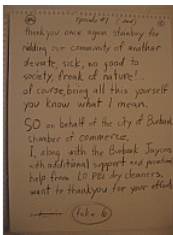 Episode #1 (and)
thankyou once again standby for
ridding our community of another
deviate, sick, no good to
society, freak of nature!..
of course, being all this yourself
you know what I mean.
SO on behalf of the city of Burbank
chamber of commerce,
I, along with the Burbank Jaycees
with additional support and
help from LO PBI dry cleaners,
want to thankyou for your efforts
take 6